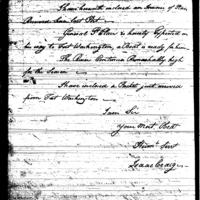 I have herewith inclosed an Account of
Received since last Post
General St Clair is hourly Expected on
his way to Fort Washington, a Boat is ready for him
The River Continues Remarkably high
for the Season
I have inclosed a Packet just arrived
from Fort Washington
I am Sir
Your Most Obed
Hum Servt
Isaac Craig